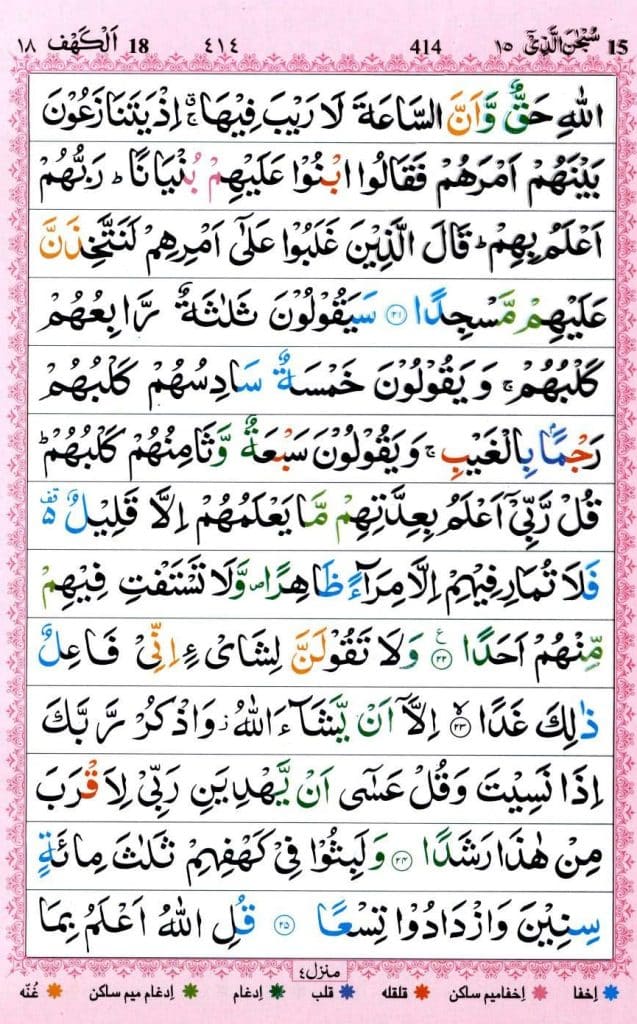 15 سُبْحٰنَ الَّذِيْٓ ١٥ 414 ٤١٤ 18 اَلْكَهْف ١٨
اللّٰهِ حَقٌّ وَّاَنَّ السَّاعَةَ لَا رَيْبَ فِيْهَا ۚ اِذْ يَتَنَازَعُوْنَ
بَيْنَهُمْ اَمْرَهُمْ فَقَالُوا ابْنُوْا عَلَيْهِمْ بُنْيَانًا ؕ رَبُّهُمْ
اَعْلَمُ بِهِمْ ؕ قَالَ الَّذِيْنَ غَلَبُوْا عَلٰٓى اَمْرِهِمْ لَنَتَّخِذَنَّ
عَلَيْهِمْ مَّسْجِدًا ۝٢١ سَيَقُوْلُوْنَ ثَلٰثَةٌ رَّابِعُهُمْ
كَلْبُهُمْ ۚ وَيَقُوْلُوْنَ خَمْسَةٌ سَادِسُهُمْ كَلْبُهُمْ
رَجْمًۢا بِالْغَيْبِ ۚ وَيَقُوْلُوْنَ سَبْعَةٌ وَّثَامِنُهُمْ كَلْبُهُمْ ؕ
قُلْ رَّبِّيْٓ اَعْلَمُ بِعِدَّتِهِمْ مَّا يَعْلَمُهُمْ اِلَّا قَلِيْلٌ ۵ قف
فَلَا تُمَارِ فِيْهِمْ اِلَّا مِرَآءً ظَاهِرًا ۪ وَّلَا تَسْتَفْتِ فِيْهِمْ
مِّنْهُمْ اَحَدًا ۝٢٢ ع وَلَا تَقُوْلَنَّ لِشَايْءٍ اِنِّيْ فَاعِلٌ
ذٰلِكَ غَدًا ۙ۝٢٣ اِلَّآ اَنْ يَّشَآءَ اللّٰهُ ز وَاذْكُرْ رَّبَّكَ
اِذَا نَسِيْتَ وَقُلْ عَسٰٓى اَنْ يَّهْدِيَنِ رَبِّيْ لِاَقْرَبَ
مِنْ هٰذَا رَشَدًا ۝٢٤ وَلَبِثُوْا فِيْ كَهْفِهِمْ ثَلٰثَ مِائَةٍ
سِنِيْنَ وَازْدَادُوْا تِسْعًا ۝٢٥ قُلِ اللّٰهُ اَعْلَمُ بِمَا
منزل ٤
اِخفا اِخفامیم ساکن قلقله قلب اِدغام اِدغام میم ساکن غُنّه